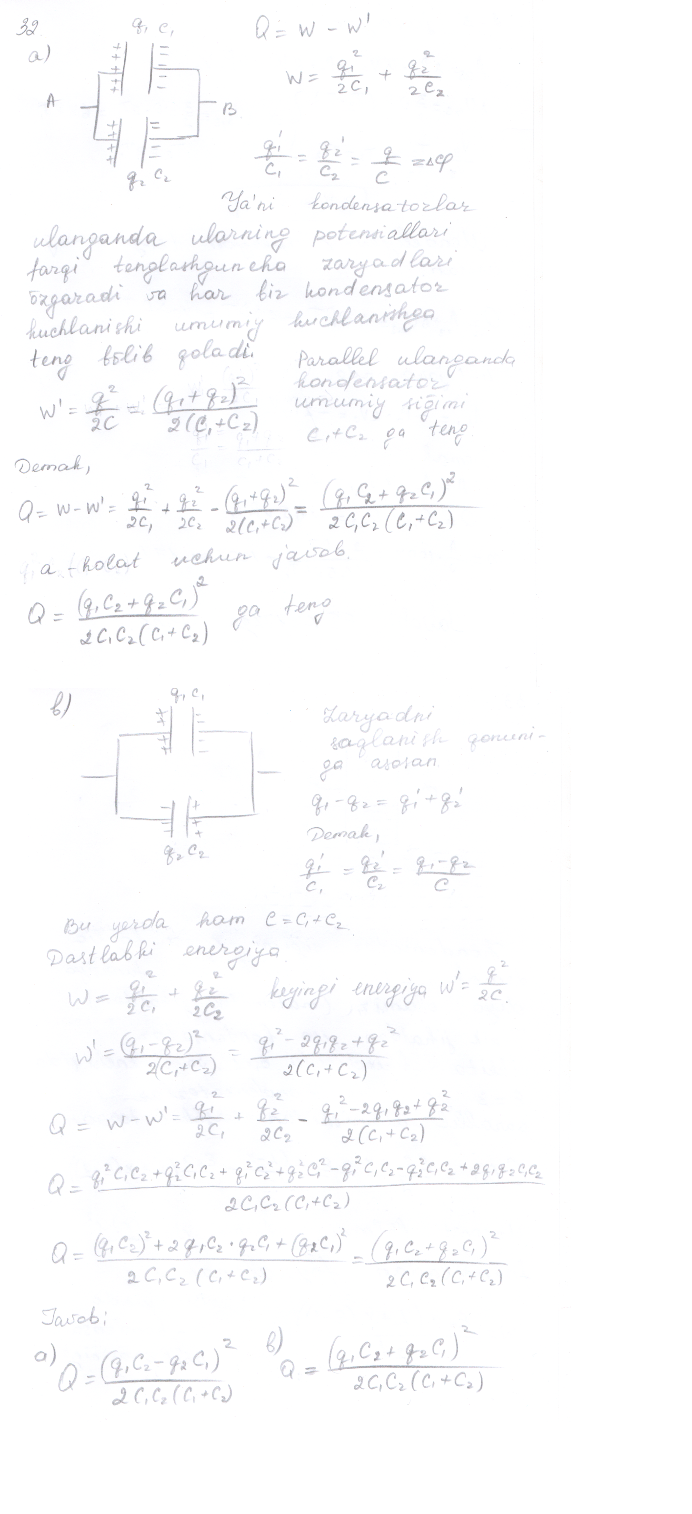 32
a)
q₁ C₁
A
B
q₂ C₂
Q = W - W'
W = q₁²/2C₁ + q₂²/2C₂
q₁'/C₁ = q₂'/C₂ = q/C = Δφ
Ya'ni kondensatorlar
ulanganda ularning potensiallari
farqi tenglashguncha zaryadlari
o'zgaradi va har bir kondensator
kuchlanishi umumiy kuchlanishga
teng bo'lib qoladi.
Parallel ulanganda
kondensator
umumiy sig'imi
C₁+C₂ ga teng
W' = q²/2C = (q₁+q₂)²/2(C₁+C₂)
Demak,
Q = W-W' = q₁²/2C₁ + q₂²/2C₂ - (q₁+q₂)²/2(C₁+C₂) = (q₁C₂+q₂C₁)²/2C₁C₂(C₁+C₂)
a-holat uchun javob.
Q = (q₁C₂+q₂C₁)²/2C₁C₂(C₁+C₂) ga teng
b)
q₁ C₁
q₂ C₂
Zaryadni
saqlanish qonuni-
ga asosan
q₁-q₂ = q₁'+q₂'
Demak,
q₁'/C₁ = q₂'/C₂ = q₁-q₂/C
Bu yerda ham C=C₁+C₂
Dastlabki energiya
W = q₁²/2C₁ + q₂²/2C₂ keyingi energiya W' = q²/2C.
W' = (q₁-q₂)²/2(C₁+C₂) = q₁²-2q₁q₂+q₂²/2(C₁+C₂)
Q = W-W' = q₁²/2C₁ + q₂²/2C₂ - q₁²-2q₁q₂+q₂²/2(C₁+C₂)
Q = q₁²C₁C₂+q₂²C₁C₂+q₁²C₂²+q₂²C₁²-q₁²C₁C₂-q₂²C₁C₂+2q₁q₂C₁C₂/2C₁C₂(C₁+C₂)
Q = (q₁C₂)²+2q₁C₂·q₂C₁+(q₂C₁)²/2C₁C₂(C₁+C₂) = (q₁C₂+q₂C₁)²/2C₁C₂(C₁+C₂)
Javob:
a) Q = (q₁C₂-q₂C₁)²/2C₁C₂(C₁+C₂) b) Q = (q₁C₂+q₂C₁)²/2C₁C₂(C₁+C₂)